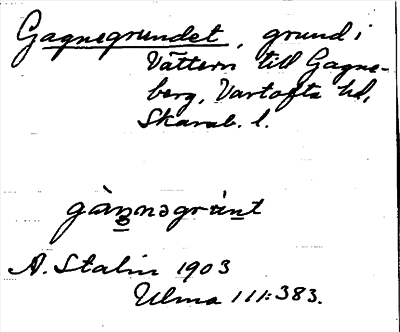 Gagnegrundet, grund i
Vättern till Gagne-
berg, Vartofta hd,
Skarab. l.
A. Stalin 1903
Ulma 111:383.